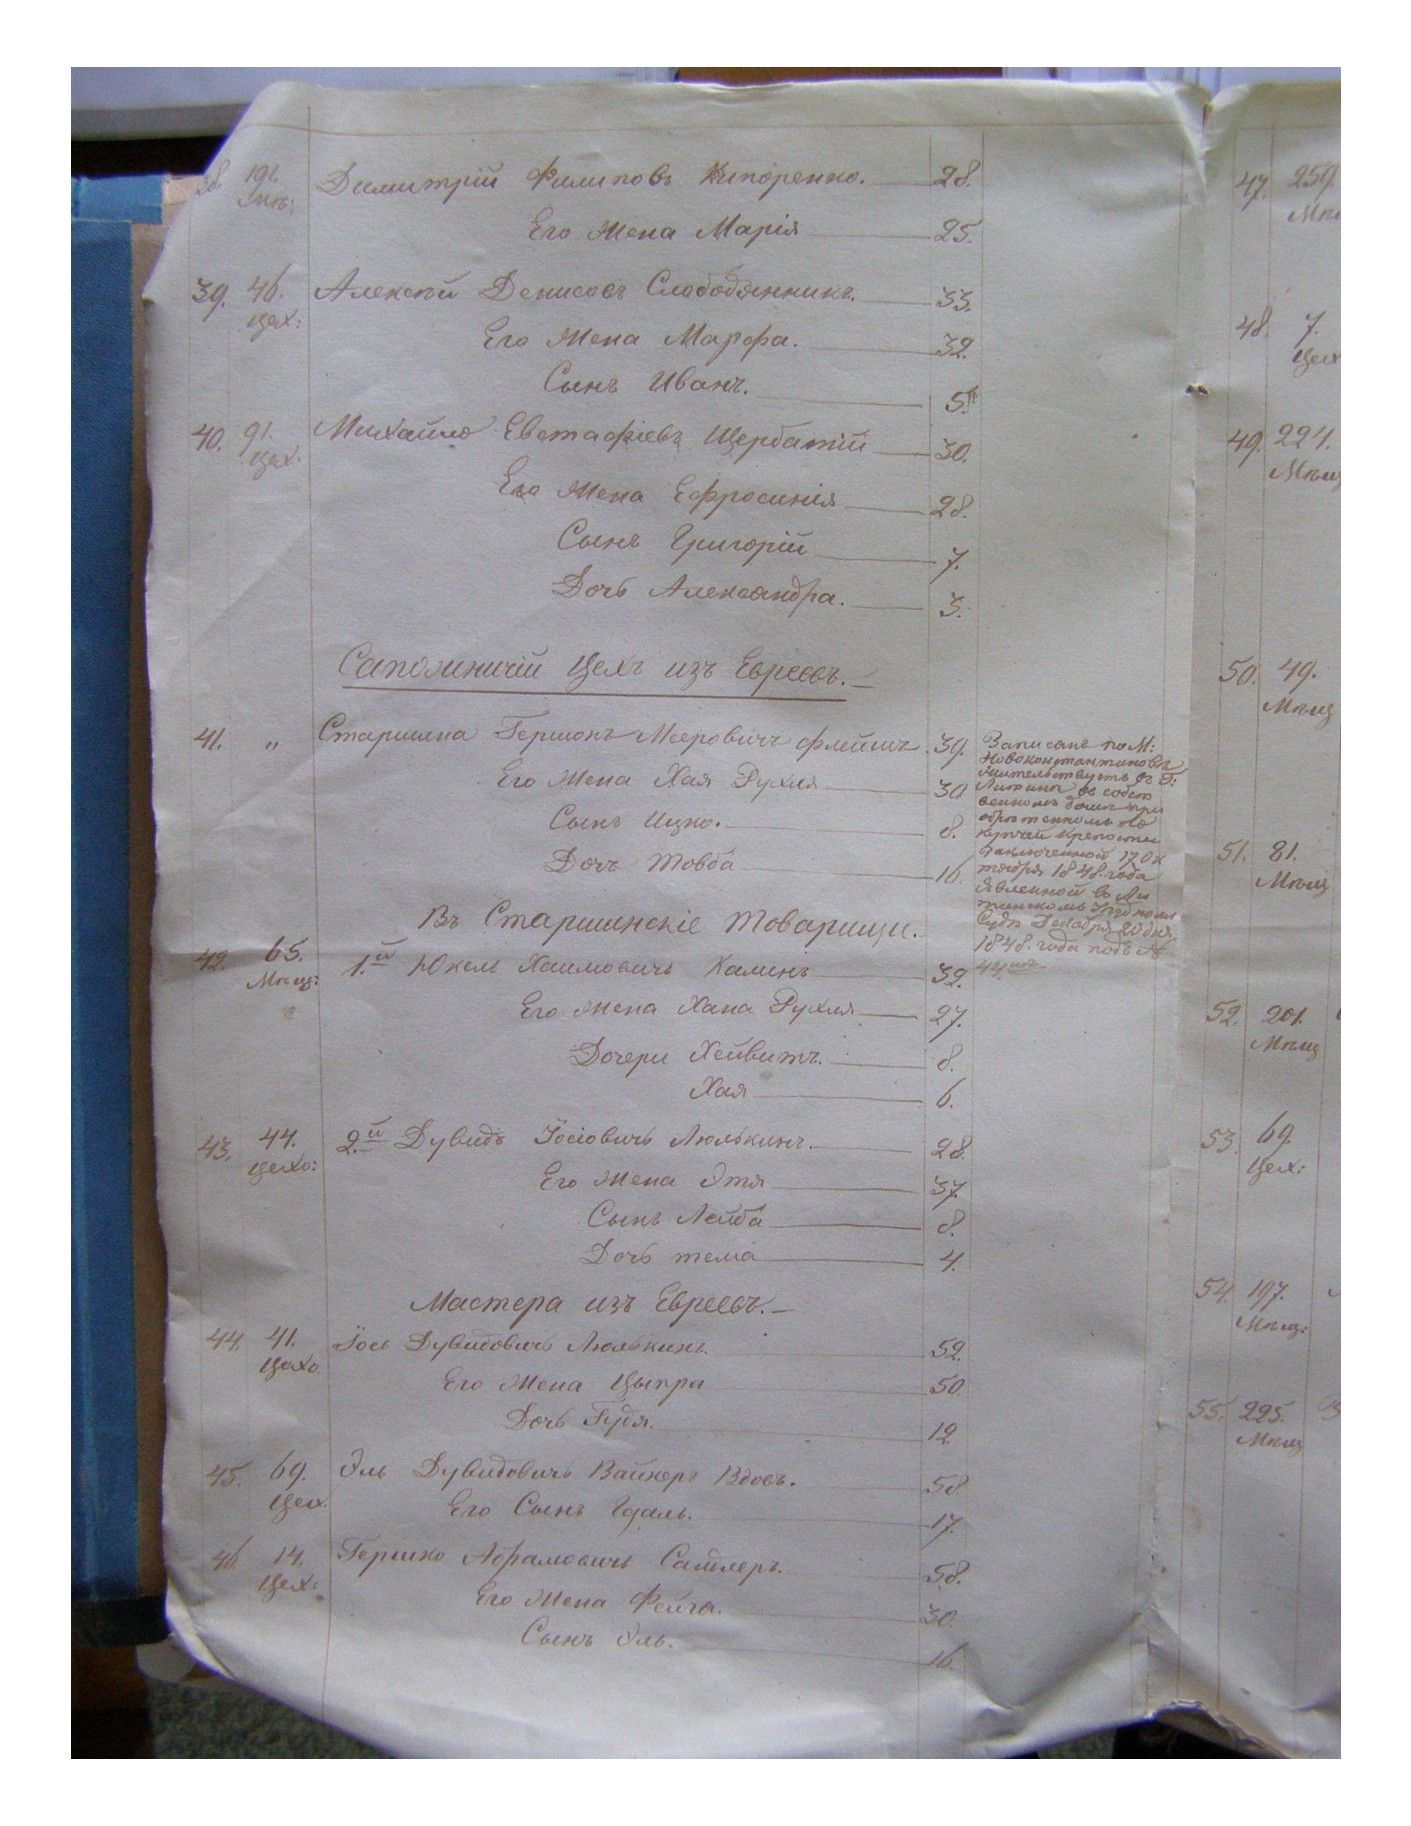 38. 191. Димитрій Филиповъ Кипоренко. 28.
Его Жена Марія 25.
39. 46. Алексѣй Денисовъ Слабодянникъ. 33.
Цех:
Его Жена Марфа. 32.
Сынъ Иванъ. 5.
40. 91. Михайло Евстафіевъ Щербатій 30.
Цех.
Его Жена Ефросинія 28.
Сынъ Григорій 7.
Дочь Александра. 3.
Сапожничій Цехъ изъ Евреевъ.
41. " Старшина Гершонъ Мееровичъ Флейшъ 39.
Его Жена Хая Рухля 30
Сынъ Ицко. 8.
Дочь Товба 16.
Записанъ по М:
Новоконстантиновъ
жительствуетъ въ Г:
Литинѣ въ собст
венномъ домѣ при
обрѣтенномъ по
купчей крепости
заключенной 17 Ок
тября 1848. года
явленной въ Ли
тинскомъ Уѣздномъ
Судѣ Декабря 20 дня
1848. года подъ №
44мъ
Въ Старшинскіе Товарищи.
42. 65. 1.й Юкель Хаимовичъ Калинъ 32.
Мѣщ:
Его Жена Хана Рухля 27.
Дочери Хейвитъ. 8.
Хая 6.
43. 44. 2.й Дувидъ Іосіовичъ Люлькинъ. 28.
цехо:
Его Жена Этя 37.
Сынъ Лейба 8.
Дочь тема 4.
Мастера изъ Евреевъ.
44. 41. Іось Дувидовичъ Люлькинъ. 52.
Цехо
Его Жена Цыпра 50.
Дочь Гудя. 12.
45. 69. Эль Дувидовичъ Вайнеръ Вдовъ. 58.
Цех.
Его Сынъ Гдаль. 17.
46 14. Гершко Абрамовичъ Сатлеръ. 58.
Цех:
Его Жена Фейга. 30.
Сынъ Эль. 16.
47. 259.
Мѣщ
48. 7.
Цех
49. 224.
Мѣщ
50. 49.
Мѣщ
51. 81.
Мѣщ
52. 201.
Мѣщ
53. 69.
Цех:
54. 197.
Мѣщ:
55. 225.
Мѣщ